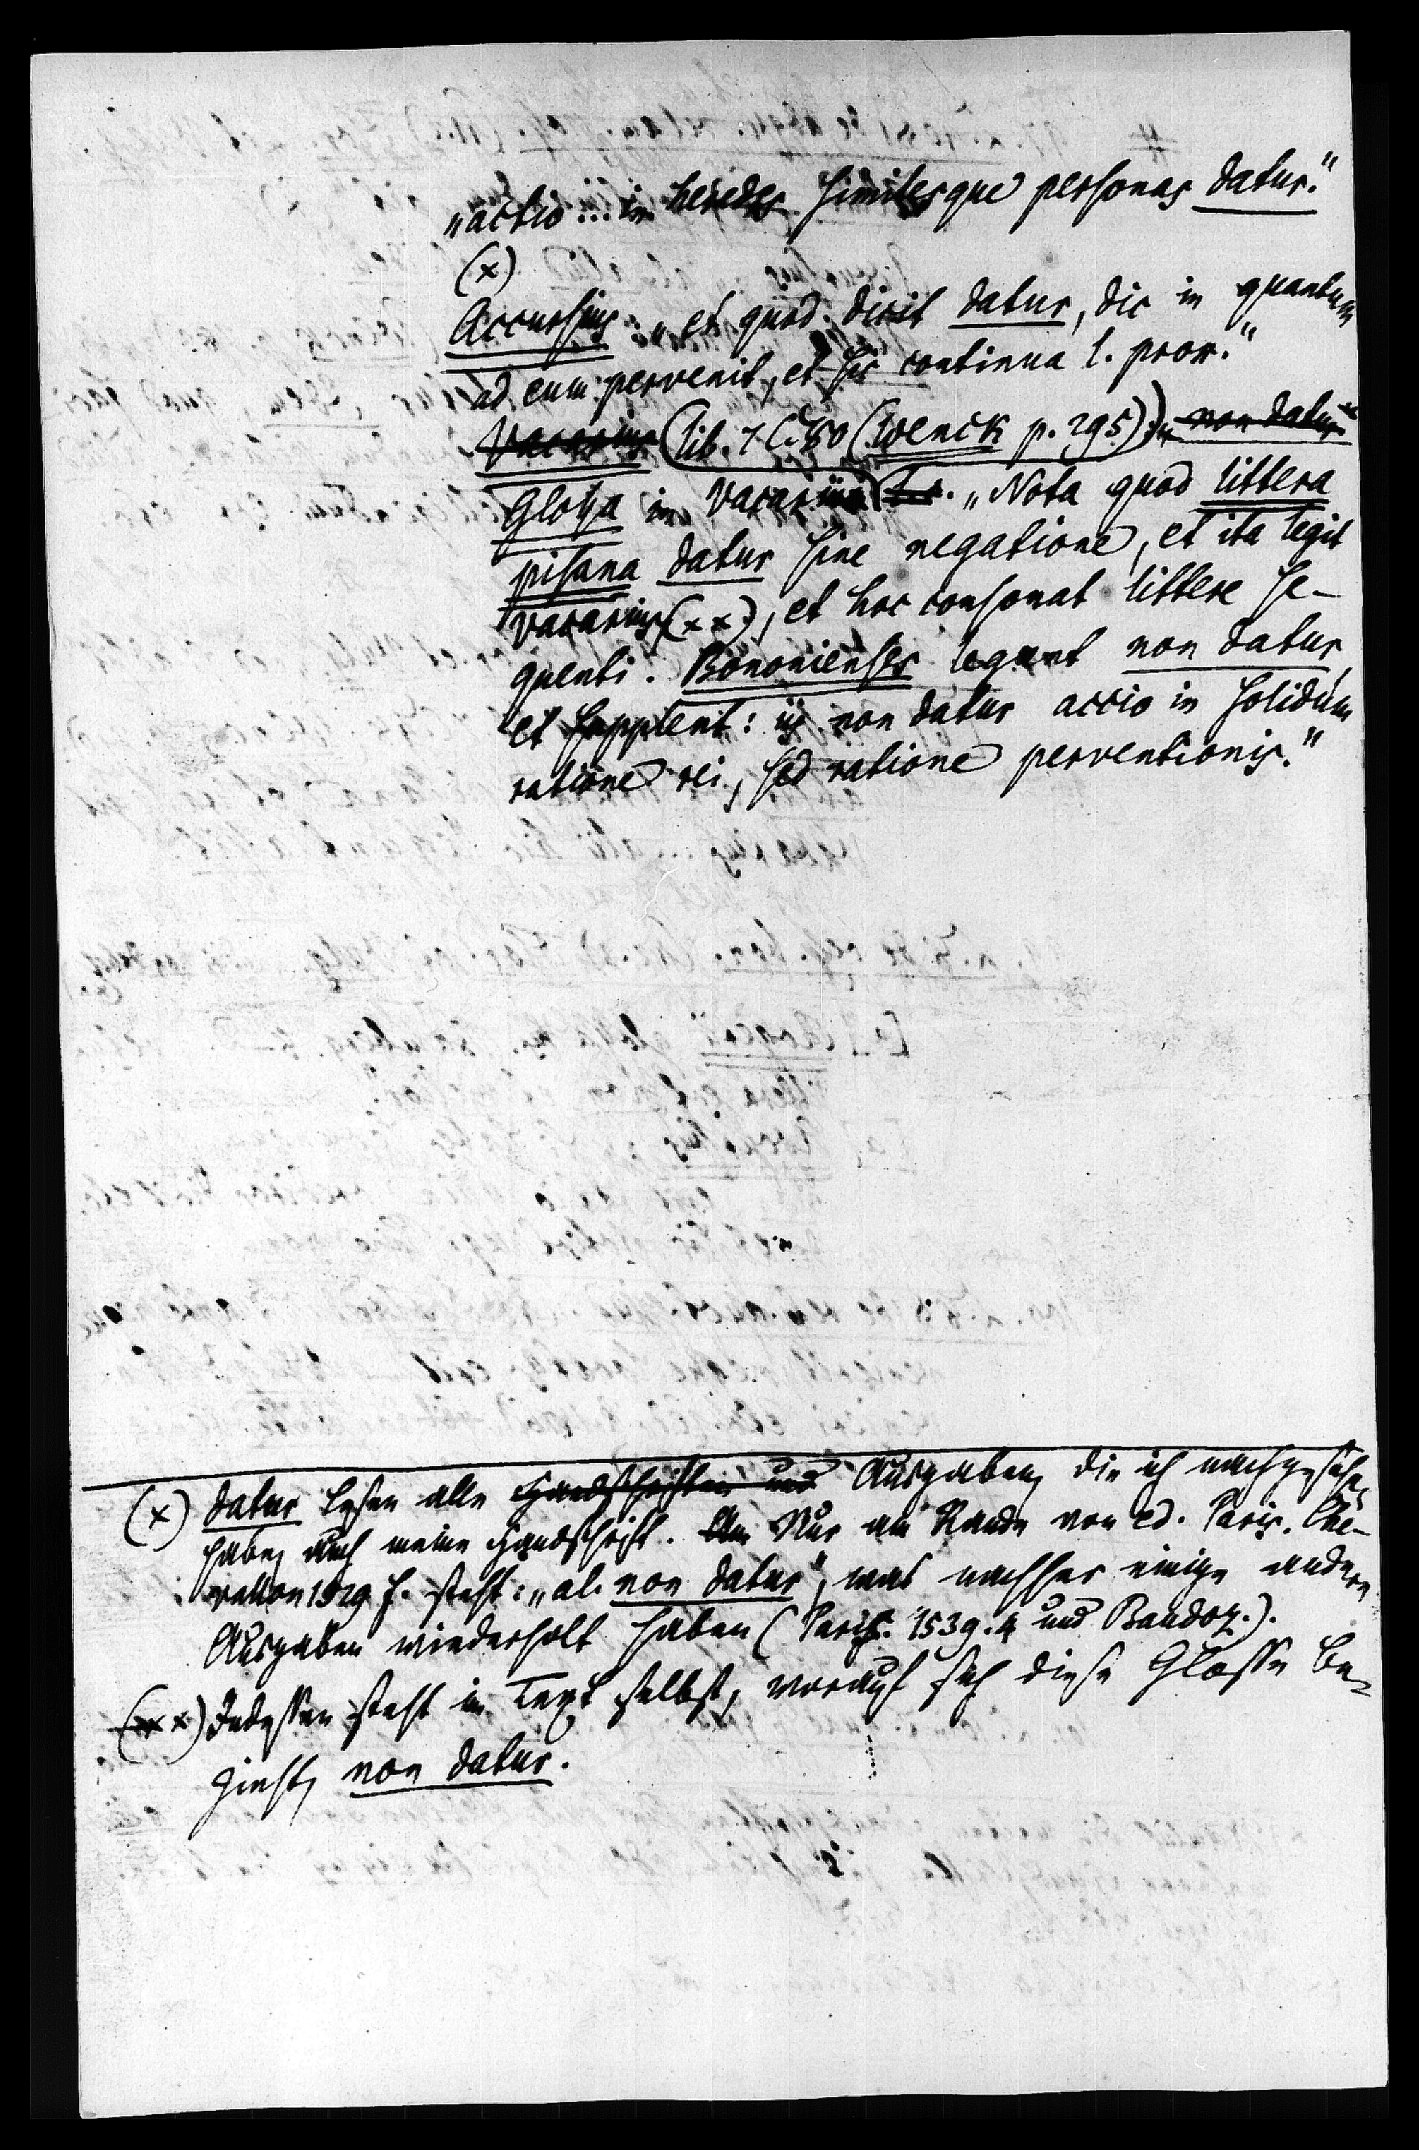 „actio ... in heredes similesque personas datur.“
(×)
Accursius: „et quod dicit datur, dic in quantum
ad eum pervenit, et sic continua l. prox.“
Vacarius (lib. 7 C. 50 (Wenck p. 295)): „non datur“
Glossa in Vacarium. „Nota quod littera
pisana datur sine negatione, et ita legit
Vacarius (××), et hoc consonat littere se-
quenti. Bononienses legunt non datur,
et supplent: non datur accio in solidum
ratione rei, sed ratione perventionis.“
(×) datur lesen alle Handschriften und Ausgaben, die ich nachgesehen
habe, auch meine Handschrift. Am Nur am Rande von ed. Paris. Che-
vallon 1529 f. steht: „al. non datur“, was nachher einige andere
Ausgaben wiederholt haben (Paris. 1539. 4 und Baudoz.).
(××) Indessen steht im Text selbst, worauf sich diese Glosse be-
zieht, non datur.